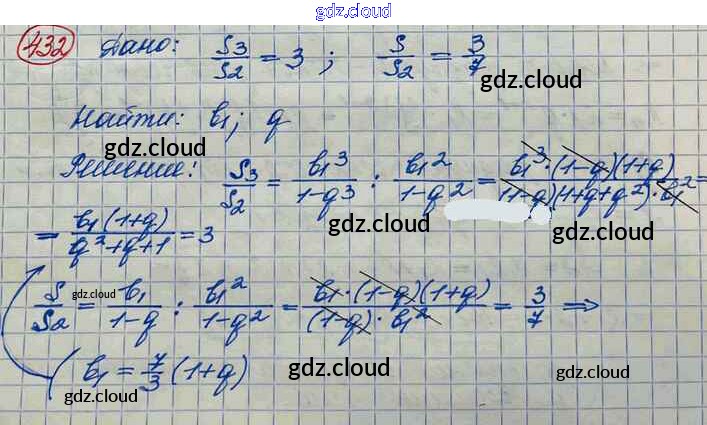 gdz.cloud
432 Дано: S3/S2 = 3 ; S/S2 = 3/7
gdz.cloud gdz.cloud
Найти: b1; q
gdz.cloud
Решение: S3/S2 = b1^3/(1-q^3) : b1^2/(1-q^2) = b1^3·(1-q)(1+q)/((1-q)(1+q+q^2)·b1^2) =
gdz.cloud gdz.cloud
= b1(1+q)/(q^2+q+1) = 3
S/S2 = b1/(1-q) : b1^2/(1-q^2) = b1·(1-q)(1+q)/((1-q)·b1^2) = 3/7 ⇒
gdz.cloud gdz.cloud
( b1 = 7/3 (1+q)
gdz.cloud gdz.cloud gdz.cloud